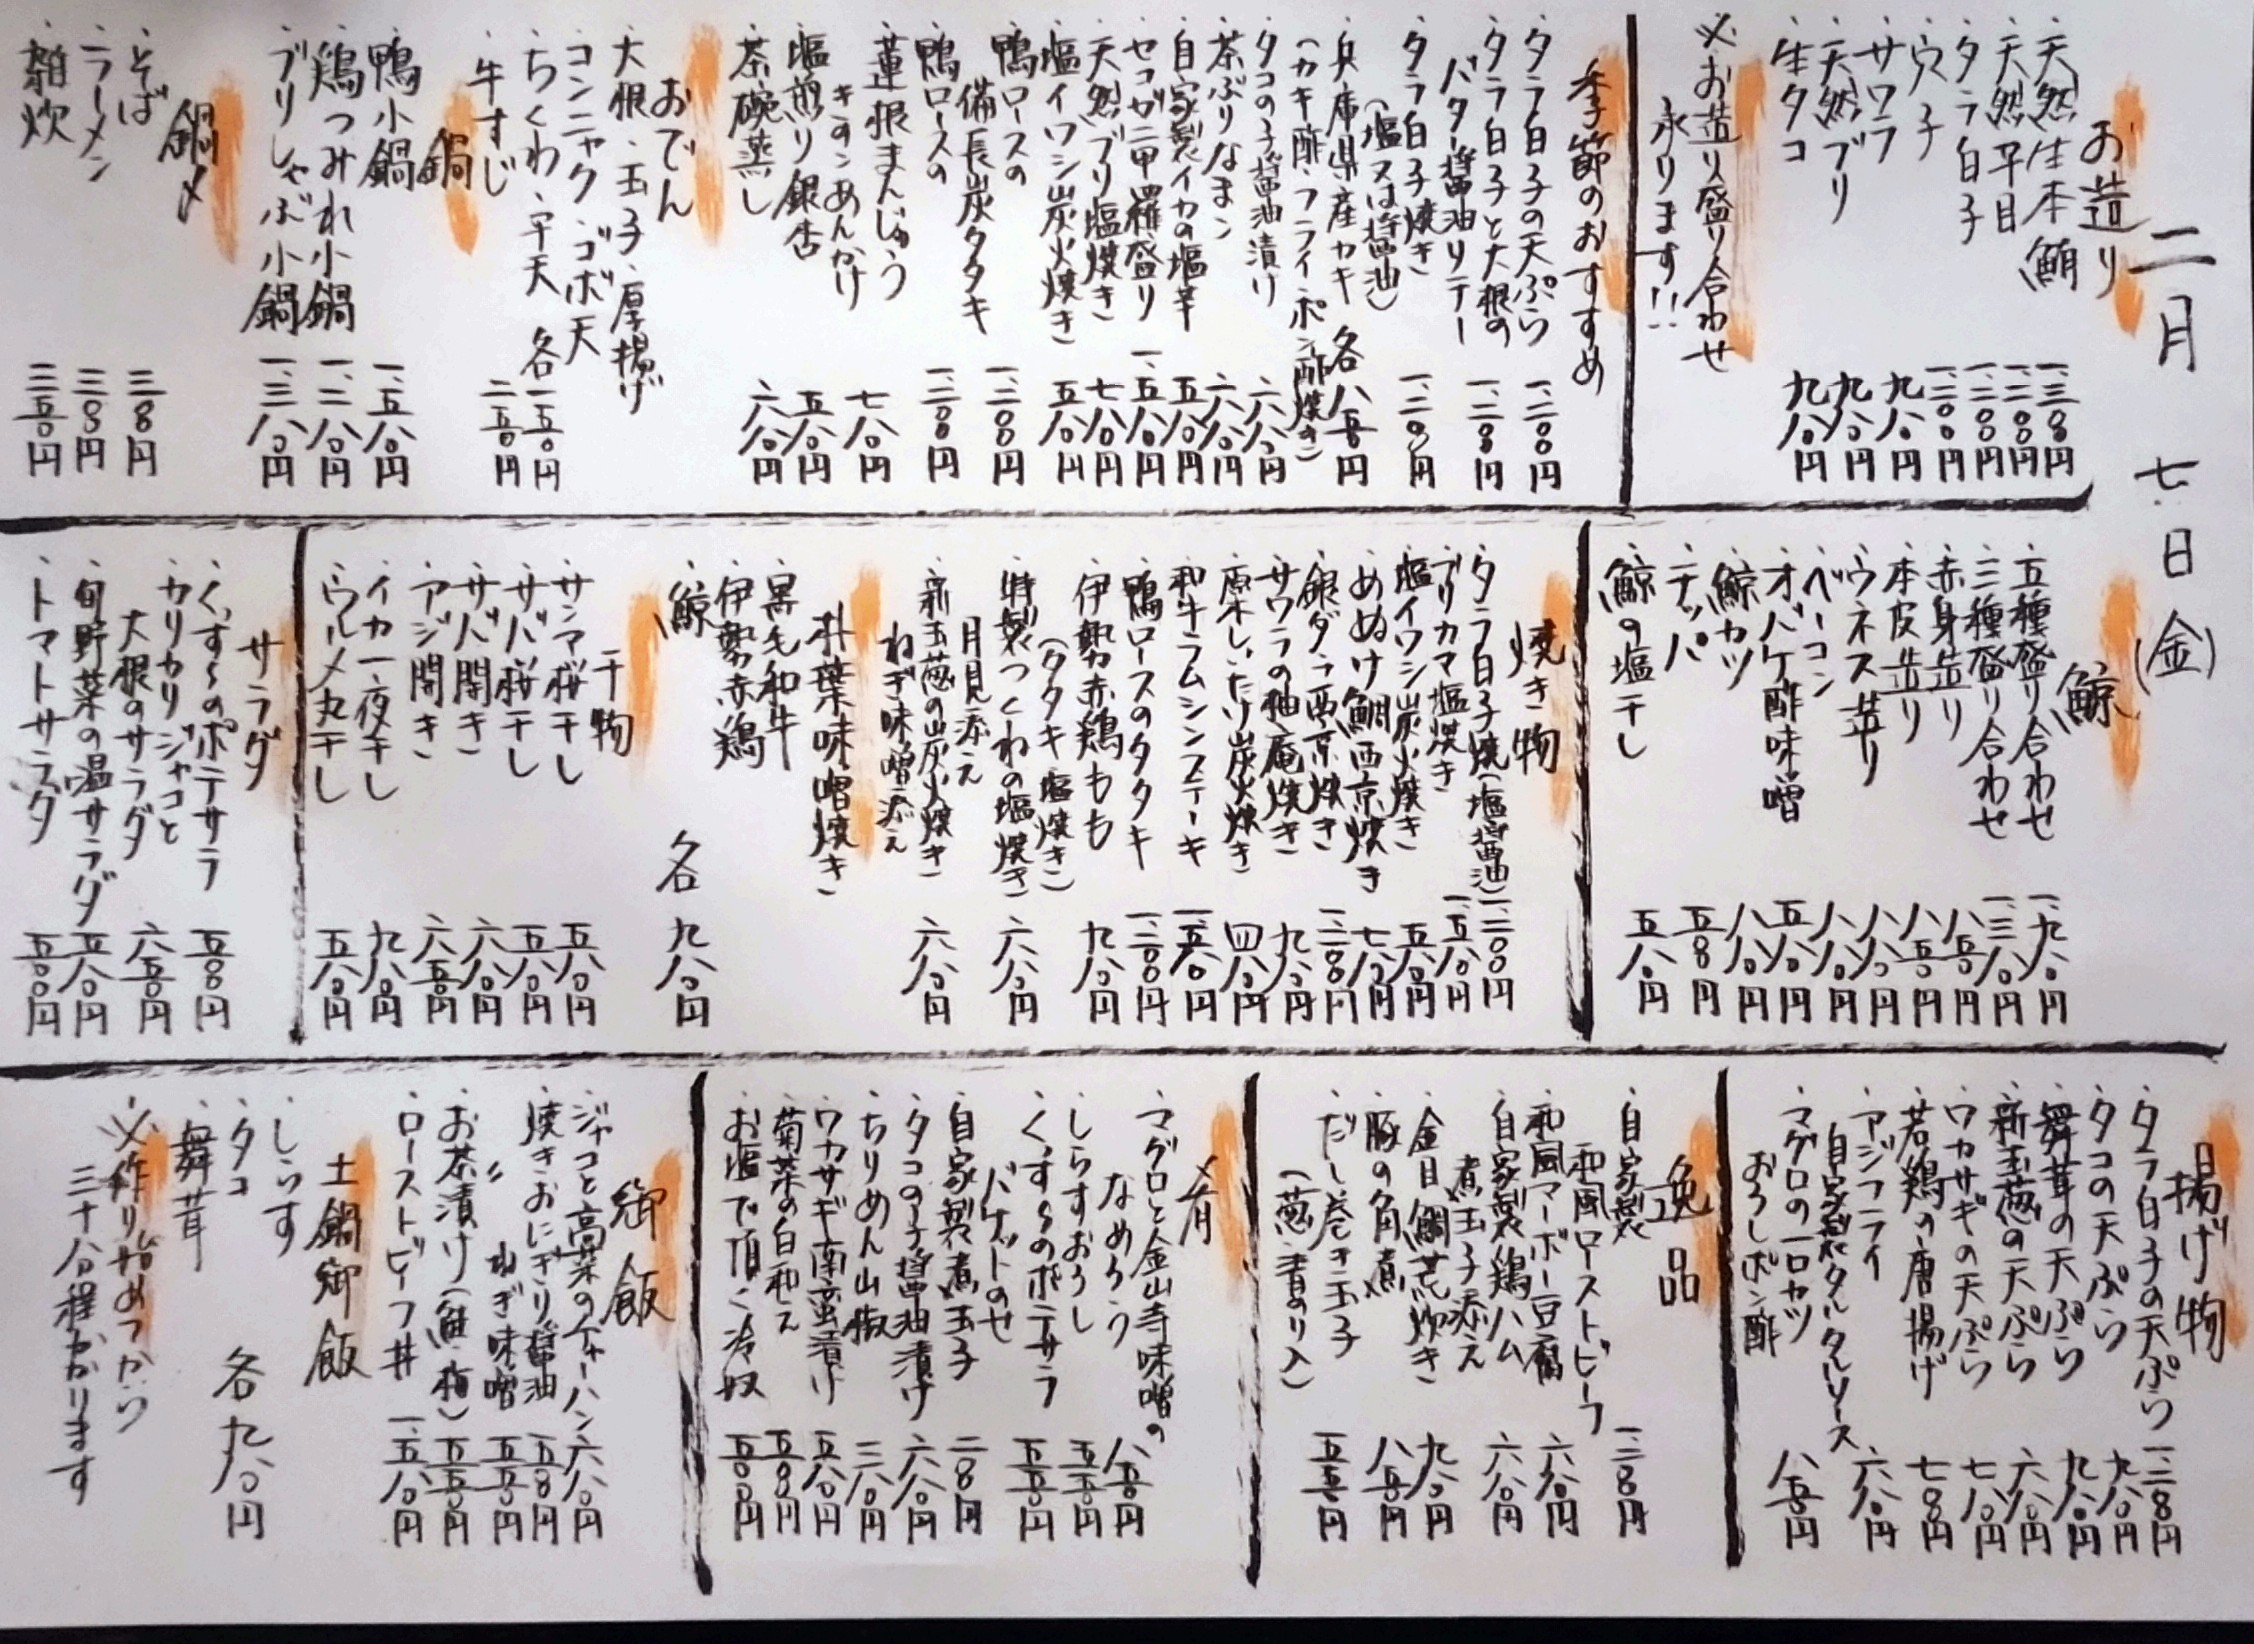 二月 七日(金)
お造り
・天然生本鮪 一、三〇〇円
・天然平目 一、二〇〇円
・タラ白子 一、二〇〇円
・穴子 一、二〇〇円
・サワラ 九八〇円
・天然ブリ 九八〇円
・生タコ 九八〇円
※お造り盛り合わせ
承ります!!
季節のおすすめ
・タラ白子の天ぷら 一、二〇〇円
・タラ白子と大根の
バター醤油ソテー 一、二〇〇円
・タラ白子焼き
(塩又は醤油) 一、二〇〇円
・兵庫県産カキ 各八五〇円
(カキ酢・フライ・ポン酢焼き)
・タコの子醤油漬け 六八〇円
・茶ぶりなまこ 六八〇円
・自家製イカの塩辛 五八〇円
・セコガニ甲羅盛り 一、五八〇円
・天然ブリ塩焼き 七八〇円
・塩イワシ炭火焼き 五八〇円
・鴨ロースの
備長炭タタキ 一、二〇〇円
・鴨ロースの
一、二〇〇円
・蓮根まんじゅう
きのこあんかけ 七八〇円
・塩煎り銀杏 五八〇円
・茶碗蒸し 六八〇円
おでん
・大根・玉子・厚揚げ
・コンニャク・ゴボ天
・ちくわ・平天 各一五〇円
・牛すじ 二五〇円
鍋
・鴨小鍋 一、五八〇円
・鶏つみれ小鍋 一、二八〇円
・ブリしゃぶ小鍋 一、三八〇円
鍋〆
・そば 三〇〇円
・ラーメン 三〇〇円
・雑炊 三五〇円
鯨
・五種盛り合わせ 一、九八〇円
・三種盛り合わせ 一、三八〇円
・赤身造り 八五〇円
・本皮造り 八五〇円
・ウネス造り 八八〇円
・ベーコン 八八〇円
・オバケ酢味噌 五八〇円
・鯨カツ 八八〇円
・テッパ 五〇〇円
・鯨の塩干し 五八〇円
焼き物
・タラ白子焼(塩・醤油) 一、二〇〇円
・ブリカマ塩焼き 一、五八〇円
・塩イワシ炭火焼き 五八〇円
・めぬけ鯛西京焼き 七八〇円
・銀ダラ西京焼き 一、二〇〇円
・サワラの柚庵焼き 九八〇円
・原木しいたけ炭火焼き 四八〇円
・和牛ラムシンステーキ 一、五八〇円
・鴨ロースのタタキ 一、二〇〇円
・伊勢赤鶏もも
(タタキ・塩焼き) 九八〇円
・特製つくねの塩焼き
月見添え 六八〇円
・新玉葱の炭火焼き
ねぎ味噌添え 六八〇円
朴葉味噌焼き
・黒毛和牛
・伊勢赤鶏
・鯨 各九八〇円
干物
・サンマ桜干し 五八〇円
・サバ桜干し 五八〇円
・サバ開き 六八〇円
・アジ開き 六五〇円
・イカ一夜干し 九八〇円
・ウルメ丸干し 五八〇円
サラダ
・くずしのポテサラ 五〇〇円
・カリカリジャコと
大根のサラダ 六五〇円
・旬野菜の温サラダ 五八〇円
・トマトサラダ 五〇〇円
揚げ物
・タラ白子の天ぷら 一、二〇〇円
・タコの天ぷら 九八〇円
・舞茸の天ぷら 九八〇円
・新玉葱の天ぷら 六八〇円
・ワカサギの天ぷら 七八〇円
・若鶏の唐揚げ 七〇〇円
・アジフライ
自家製タルタルソース 六八〇円
・マグロの一口カツ
おろしポン酢 八五〇円
逸品
・自家製
和風ローストビーフ 一、二〇〇円
・和風マーボー豆腐 六八〇円
・自家製鶏ハム
煮玉子添え 六八〇円
・金目鯛荒炊き 九八〇円
・豚の角煮 八五〇円
・だし巻き玉子
(葱・青のり入) 五五〇円
〆肴
・マグロと金山寺味噌の
なめろう 八五〇円
・しらすおろし 五五〇円
・くずしのポテサラ
バゲットのせ 五五〇円
・自家製煮玉子 二〇〇円
・タコの子醤油漬け 六八〇円
・ちりめん山椒 三八〇円
・ワカサギ南蛮漬け 五八〇円
・菊菜の白和え 五〇〇円
・お塩で頂く冷奴 五〇〇円
御飯
・ジャコと高菜のチャーハン 六八〇円
・焼きおにぎり醤油 五〇〇円
〃 ねぎ味噌 五五〇円
・お茶漬け(鮭・梅) 五五〇円
・ローストビーフ丼 一、五八〇円
土鍋御飯
・しらす
・タコ
・舞茸 各九八〇円
※作り始めてから
三十分程かかります